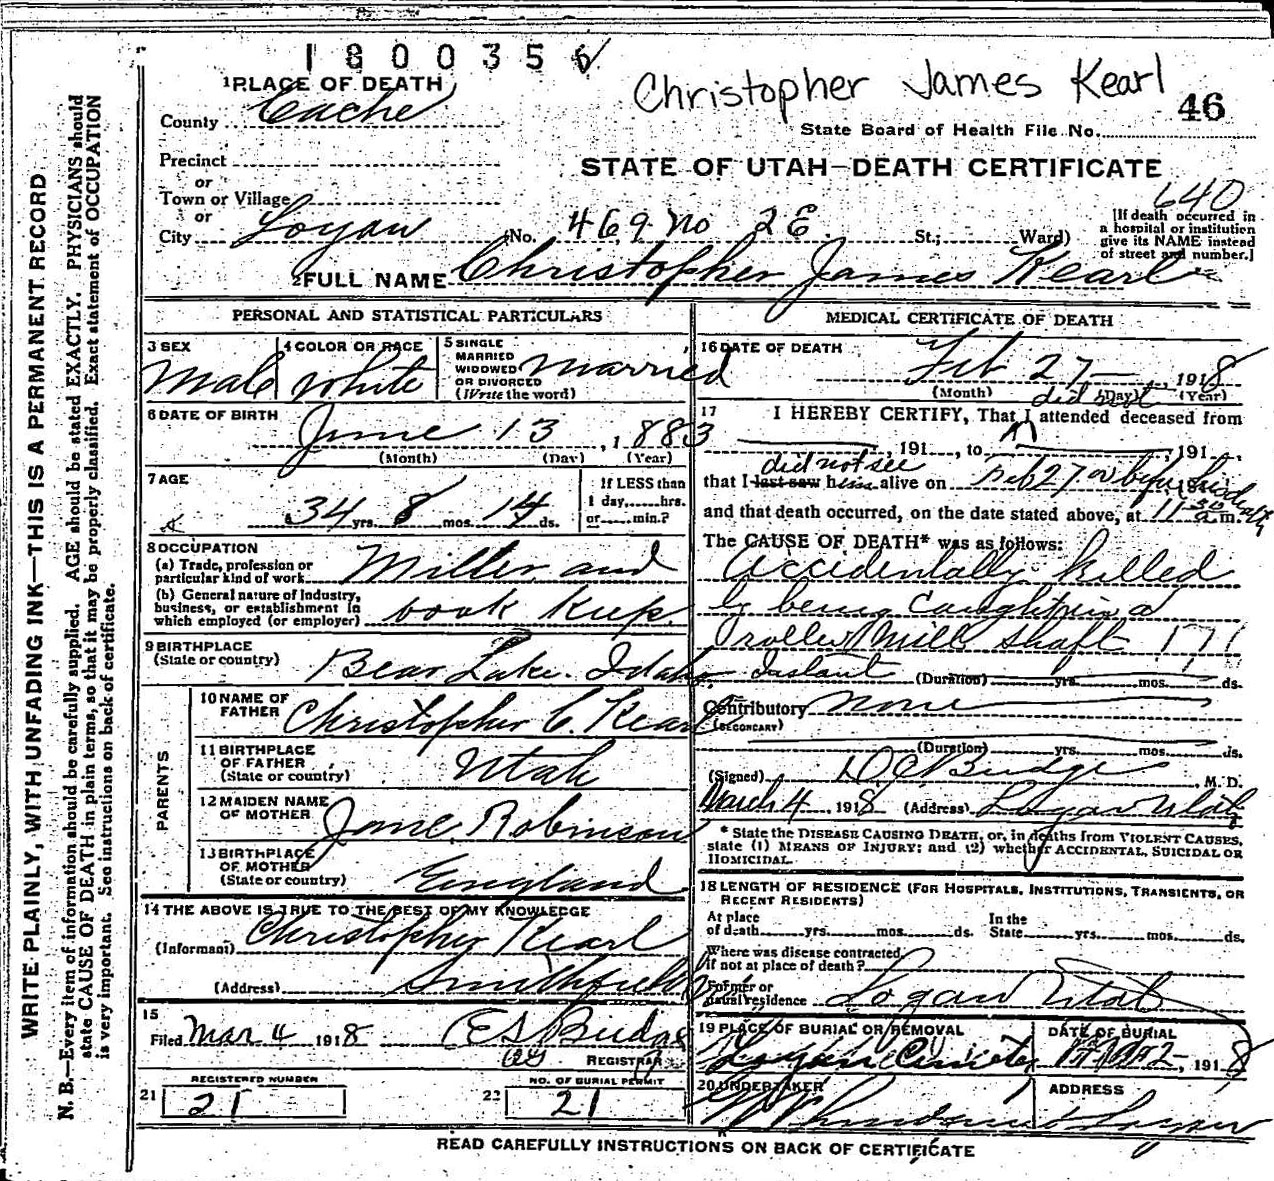 1800356
Christopher James Kearl
46
State Board of Health File No.
STATE OF UTAH—DEATH CERTIFICATE
1 PLACE OF DEATH
County Cache
Precinct
or
Town or Village
or
City Logan (No. 469 No 2 E. St.; Ward)
640
[If death occurred in
a hospital or institution
give its NAME instead
of street and number.]
2 FULL NAME Christopher James Kearl
PERSONAL AND STATISTICAL PARTICULARS
3 SEX
Male
4 COLOR OR RACE
White
5 SINGLE
MARRIED
WIDOWED
OR DIVORCED
(Write the word)
Married
6 DATE OF BIRTH
June 13, 1883
(Month) (Day) (Year)
7 AGE
34 yrs. 8 mos. 14 ds.
If LESS than
1 day, hrs.
or min.?
8 OCCUPATION
(a) Trade, profession or
particular kind of work Miller and
(b) General nature of Industry,
business, or establishment in
which employed (or employer) book keep
9 BIRTHPLACE
(State or country) Bear Lake. Idaho
PARENTS
10 NAME OF
FATHER Christopher C. Kearl
11 BIRTHPLACE
OF FATHER
(State or country) Utah
12 MAIDEN NAME
OF MOTHER Jane Robinson
13 BIRTHPLACE
OF MOTHER
(State or country) England
14 THE ABOVE IS TRUE TO THE BEST OF MY KNOWLEDGE
(Informant) Christopher Kearl
(Address) Smithfield
15
Filed Mar 4 1918 E S Budge
REGISTRAR
REGISTERED NUMBER
21 21
NO. OF BURIAL PERMIT
22 21
MEDICAL CERTIFICATE OF DEATH
16 DATE OF DEATH
Feb 27 — 1918
(Month) (Day) (Year)
did not
17 I HEREBY CERTIFY, That I attended deceased from
, 191 , to , 191 ,
did not see
that I last saw him alive on Feb 27 or before his death
and that death occurred, on the date stated above, at 11 30 a.m.
The CAUSE OF DEATH* was as follows:
Accidentally killed
by being caught in a
roller mill shaft 171
Instant (Duration) yrs. mos. ds.
Contributory None
(SECONDARY)
(Duration) yrs. mos. ds.
(Signed) D C Budge, M. D.
March 4, 1918 (Address) Logan Utah
* State the DISEASE CAUSING DEATH, or, in deaths from VIOLENT CAUSES,
state (1) MEANS OF INJURY; and (2) whether ACCIDENTAL, SUICIDAL OR
HOMICIDAL.
18 LENGTH OF RESIDENCE (FOR HOSPITALS, INSTITUTIONS, TRANSIENTS, OR
RECENT RESIDENTS)
At place
of death yrs. mos. ds.
In the
State yrs. mos. ds.
Where was disease contracted,
if not at place of death?
Former or
usual residence Logan Utah
19 PLACE OF BURIAL OR REMOVAL
Logan Cemetery
DATE OF BURIAL
Mar 2-, 1918
20 UNDERTAKER
ADDRESS
Logan
READ CAREFULLY INSTRUCTIONS ON BACK OF CERTIFICATE
WRITE PLAINLY, WITH UNFADING INK—THIS IS A PERMANENT RECORD
N. B.—Every item of information should be carefully supplied. AGE should be stated EXACTLY. PHYSICIANS should
state CAUSE OF DEATH in plain terms, so that it may be properly classified. Exact statement of OCCUPATION
is very important. See instructions on back of certificate.